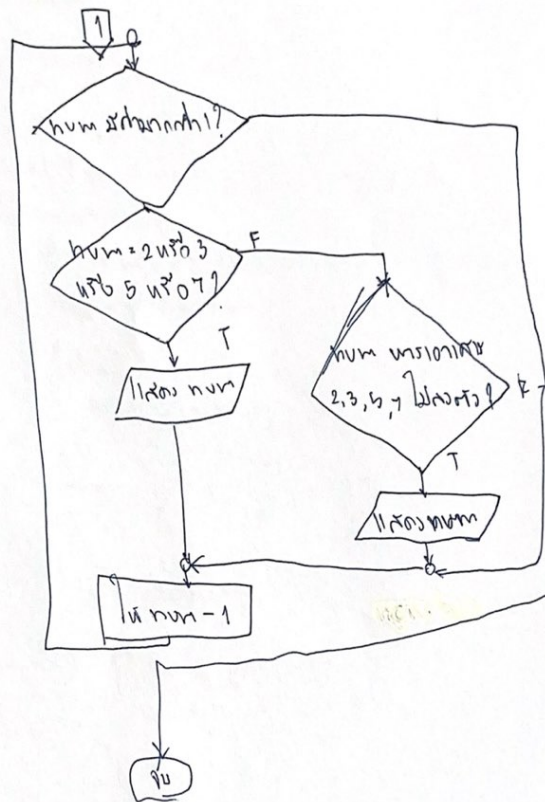 1
num มีค่ามากกว่า 1?
num = 2 หรือ 3
หรือ 5 หรือ 7?
F
T
แสดง num
num หารเอาเศษ
2,3,5,7 ไม่ลงตัว?
F
T
แสดง num
ให้ num - 1
จบ